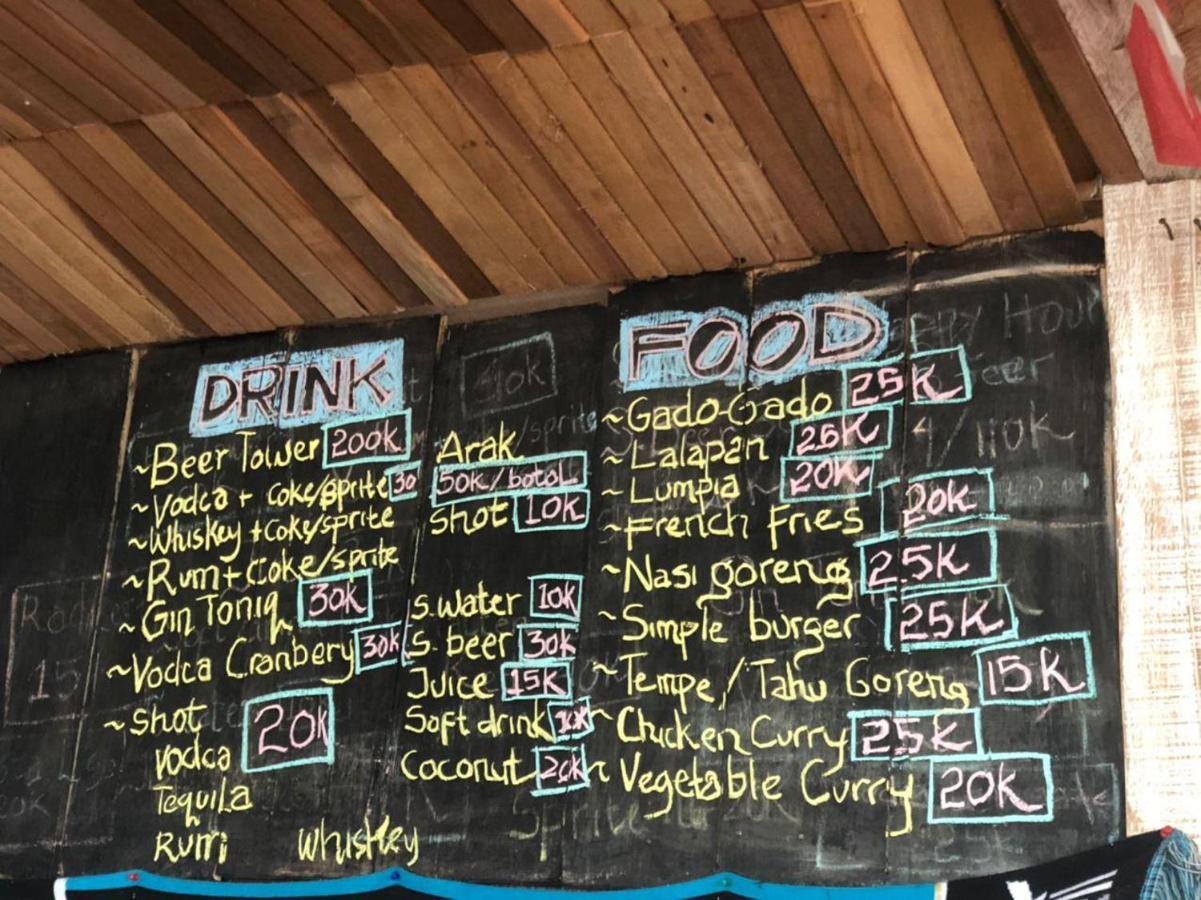 DRINK
~Beer Tower 200k
~Vodca + coke/sprite 30
~Whiskey + coke/sprite
~Rum + Coke/sprite
~Gin Toniq 30k
~Vodca Cranbery 30k
~shot 20k
vodca
Tequila
Rum whiskey
Arak
50k/botol
shot 10k
S.water 10k
S. beer 30k
Juice 15k
Soft drink
Coconut 20k
FOOD
~Gado-Gado 25K
~Lalapan 25K
~Lumpia 20K
~French Fries 20k
~Nasi goreng 25K
~Simple burger 25K
~Tempe/Tahu Goreng 15k
~Chicken Curry 25K
~Vegetable Curry 20k